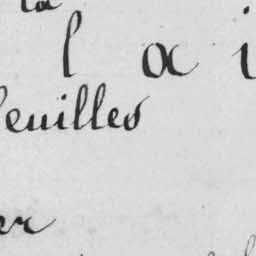 la
l a i
feuilles
er